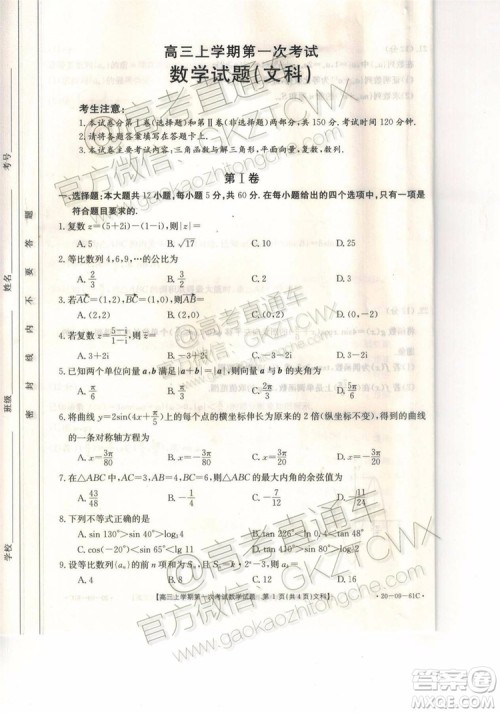 高三上学期第一次考试
数学试题(文科)
考生注意:
1.本试卷分第Ⅰ卷(选择题)和第Ⅱ卷(非选择题)两部分,共 150 分。考试时间 120 分钟。
2.请将各题答案填写在答题卡上。
3.本试卷主要考试内容:三角函数与解三角形,平面向量,复数,数列。
第Ⅰ卷
一、选择题:本大题共 12 小题,每小题 5 分,共 60 分.在每小题给出的四个选项中,只有一项是
符合题目要求的.
1.复数 z=(5+2i)-(1+i),则|z|=
A. 5 B. √17 C. 3 D. √10
2.等比数列 4,6,9,…的公比为
A. 2/3 B. 3/2 C. 2 D. 3
3.若AC=(1,2),BC=(1,0),则AB=
A. (2,2) B. (2,0) C. (0,2) D. (0,-2)
4.若复数 z=(5-i)/(1-i),则 z=
A. 3+2i B. -3+2i C. -3-2i D. 3-2i
5.已知两个单位向量 a,b 满足|a+b|=|b|,则 a 与 b 的夹角为
A. π/6 B. π/3
6.将曲线 y=2sin(4x+π/5)上的每个点的横坐标伸长为原来的 2 倍(纵坐标不变),得到的曲线
的一条对称轴方程为
A. x=3π/80 B. x=-3π/80 C. x=3π/20 D. x=-3π/20
7.在△ABC 中,AC=3,AB=4,BC=6,则△ABC 的最大内角的余弦值为
A. 43/48 B. -11/24 C. -7/12 D. 11/24
8.下列不等式正确的是
A. sin 130°>sin 40°>log₃4 B. tan 226°<ln 0.4<tan 48°
C. cos(-20°)<sin 65°<lg 11 D. tan 410°>sin 80°>log₅2
9.设等比数列{aₙ}的前 n 项和为 Sₙ,若
【高三上学期第一次考试数学试题 第 1 页(共 4 页)文科】
·20-09-61C·
学校
班级
姓名
考号
密 封 线 内 不 要 答 题
@高考直通车
官方微信:GKZTCWX
www.gaokaozhitongche.com
答案圈
MXQE.COM